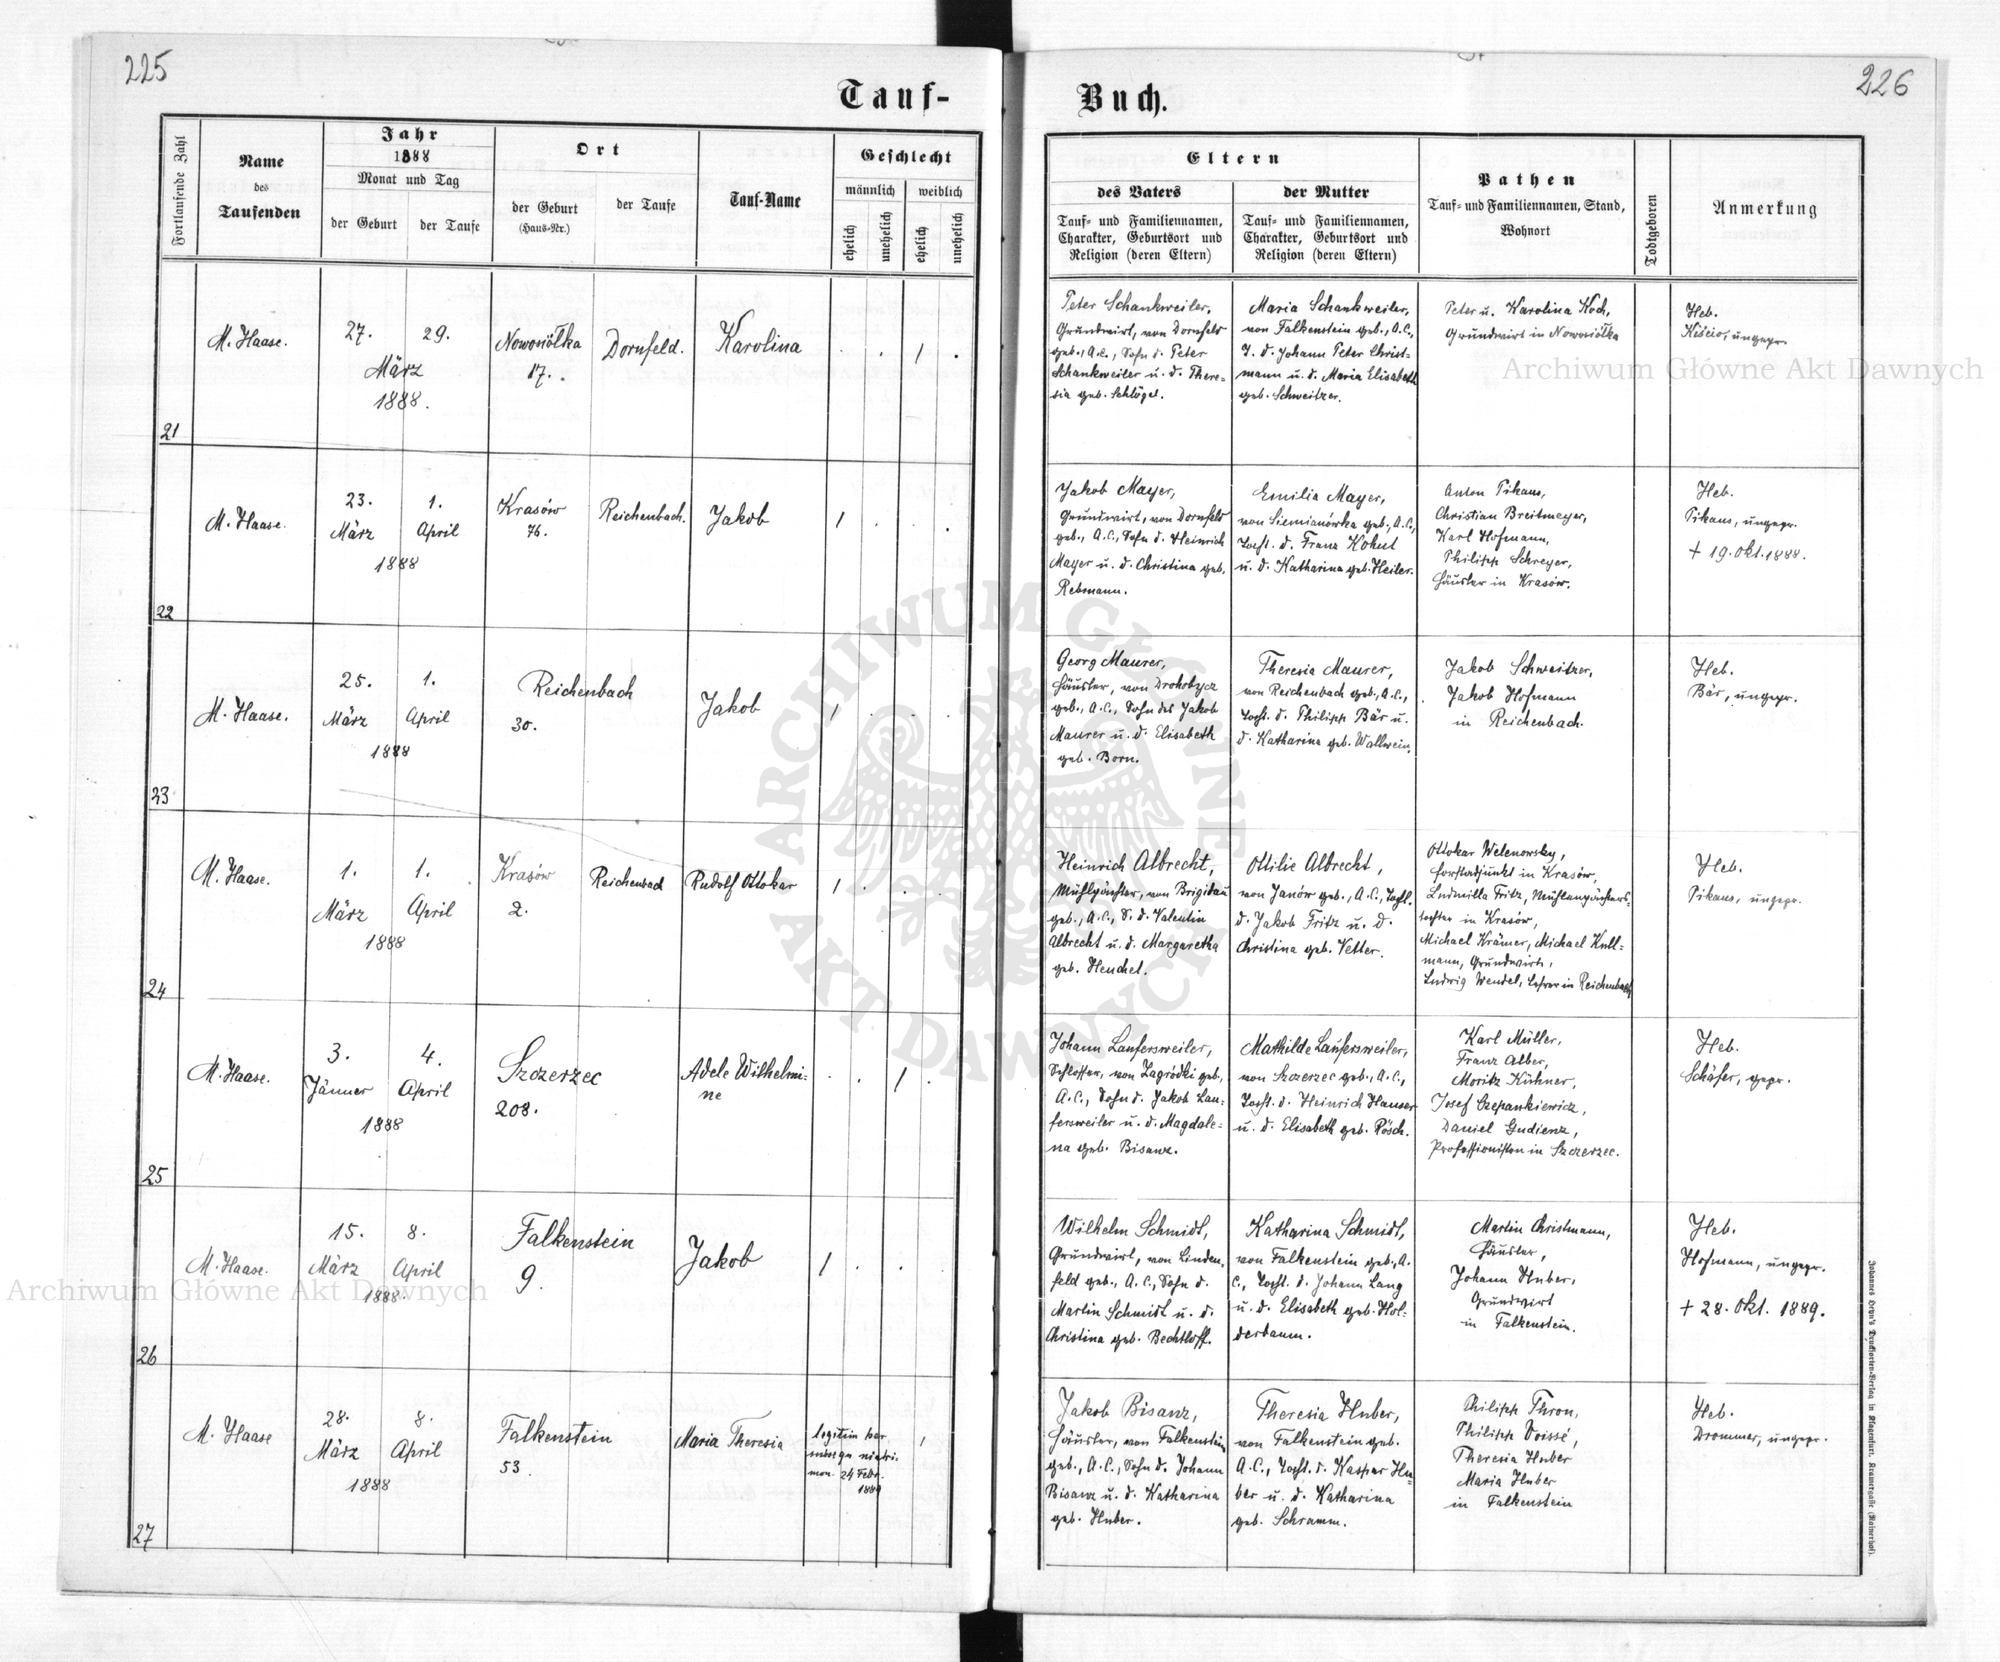 225
226
Tauf-
Buch.
Fortlaufende Zahl
Name
des
Taufenden
Jahr
1888
Monat und Tag
der Geburt
der Taufe
Ort
der Geburt
(Haus-Nr.)
der Taufe
Tauf-Name
Geschlecht
männlich
weiblich
ehelich
unehelich
ehelich
unehelich
Eltern
des Vaters
Tauf- und Familiennamen,
Charakter, Geburtsort und
Religion (deren Eltern)
der Mutter
Tauf- und Familiennamen,
Charakter, Geburtsort und
Religion (deren Eltern)
Pathen
Tauf- und Familiennamen, Stand,
Wohnort
Todtgeboren
Anmerkung
21
M. Haase.
27. 29.
März
1888.
Nowosiółka
17.
Dornfeld.
Karolina
1
Peter Schankweiler,
Grundwirt, von Dornfeld
geb., A.C., Sohn d. Peter
Schankweiler u. d. There-
sia geb. Schlögel.
Maria Schankweiler,
von Falkenstein geb., A.C.,
T. d. Johann Peter Christ-
mann u. d. Maria Elisabeth
geb. Schweitzer.
Peter u. Karolina Koch,
Grundwirt in Nowosiółka
Heb.
Kiścio, ungepr.
22
M. Haase.
23. 1.
März April
1888
Krasów
76.
Reichenbach.
Jakob
1
Jakob Mayer,
Grundwirt, von Dornfeld
geb., A.C., Sohn d. Heinrich
Mayer u. d. Christina geb.
Rebmann.
Emilia Mayer,
von Siemianówka geb., A.C.,
Tocht. d. Franz Kohut
u. d. Katharina geb. Heiler.
Anton Pikaus,
Christian Breitmeyer,
Karl Hofmann,
Philipp Schreyer,
Häusler in Krasów.
Heb.
Pikaus, ungepr.
† 19. Okt. 1888.
23
M. Haase.
25. 1.
März April
1888
Reichenbach
30.
Jakob
1
Georg Maurer,
Häusler, von Drohobycz
geb., A.C., Sohn des Jakob
Maurer u. d. Elisabeth
geb. Born.
Theresia Maurer,
von Reichenbach geb., A.C.,
Tocht. d. Philipp Bär u.
d. Katharina geb. Wallwein.
Jakob Schweitzer,
Jakob Hofmann
in Reichenbach.
Heb.
Bär, ungepr.
24
M. Haase.
1. 1.
März April
1888
Krasów
2.
Reichenbach
Rudolf Ottokar
1
Heinrich Albrecht,
Mühlpächter, von Brigidau
geb., A.C., S. d. Valentin
Albrecht u. d. Margaretha
geb. Henchel.
Ottilie Albrecht,
von Janów geb., A.C., Tocht.
d. Jakob Fritz u. d.
Christina geb. Vetter.
Ottokar Welenowsky,
Forstadjunkt in Krasów,
Ludmilla Fritz, Mühlenpächters-
tochter in Krasów,
Michael Krämer, Michael Kull-
mann, Grundwirte,
Ludwig Wendel, Lehrer in Reichenbach
Heb.
Pikaus, ungepr.
25
M. Haase.
3. 4.
Jänner April
1888
Szczerzec
208.
Adele Wilhelmi-
ne
1
Johann Laufersweiler,
Schlosser, von Zagródki geb.,
A.C., Sohn d. Jakob Lau-
fersweiler u. d. Magdale-
na geb. Bisanz.
Mathilde Laufersweiler,
von Szczerzec geb., A.C.,
Tocht. d. Heinrich Hauser
u. d. Elisabeth geb. Rösch.
Karl Müller,
Franz Alber,
Moritz Kühner,
Josef Czepankiewicz,
Daniel Gudienz,
Professionisten in Szczerzec.
Heb.
Schäfer, gepr.
26
M. Haase.
15. 8.
März April
1888.
Falkenstein
9.
Jakob
1
Wilhelm Schmidt,
Grundwirt, von Linden-
feld geb., A.C., Sohn d.
Martin Schmidt u. d.
Christina geb. Bechtloff.
Katharina Schmidt,
von Falkenstein geb., A.
C., Tocht. d. Johann Lang
u. d. Elisabeth geb. Hol-
derbaum.
Martin Christmann,
Häusler,
Johann Huber,
Grundwirt
in Falkenstein.
Heb.
Hofmann, ungepr.
† 28. Okt. 1889.
27
M. Haase
28. 8.
März April
1888
Falkenstein
53.
Maria Theresia
legitim per
subsequ matri-
mon. 24 Febr.
1889
1
Jakob Bisanz,
Häusler, von Falkenstein
geb., A.C., Sohn d. Johann
Bisanz u. d. Katharina
geb. Huber.
Theresia Huber,
von Falkenstein geb.
A.C., Tocht. d. Kaspar Hu-
ber u. d. Katharina
geb. Schramm.
Philipp Thron,
Philipp Voissé,
Theresia Huber
Maria Huber
in Falkenstein
Heb.
Drommer, ungepr.
Johannes Heyn's Drucksorten-Verlag in Klagenfurt, Kramergasse (Rainerhof).
Archiwum Główne Akt Dawnych
Archiwum Główne Akt Dawnych
ARCHIWUM GŁÓWNE AKT DAWNYCH